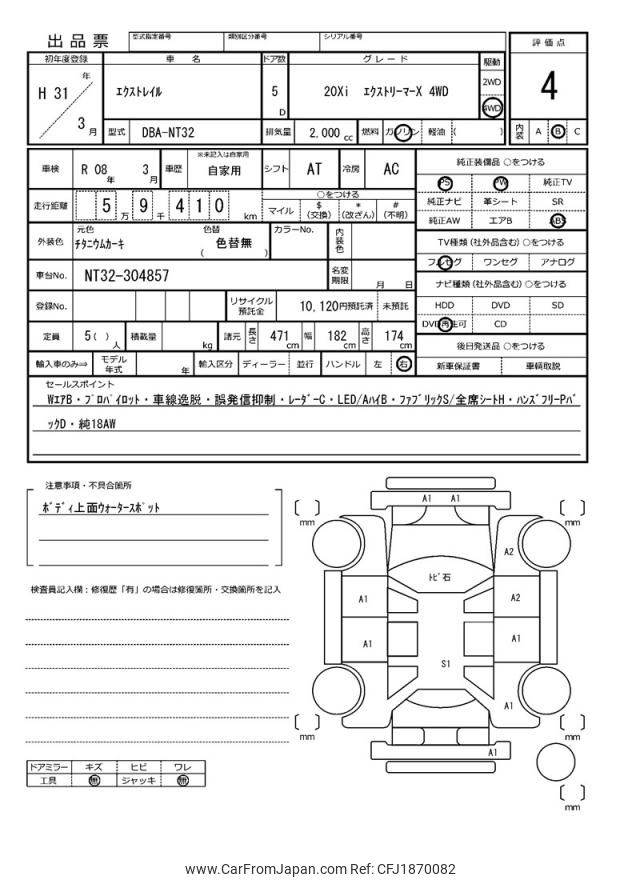 出品票 型式指定番号 類別区分番号 シリアル番号
評価点
初年度登録 車 名 ドア数 グレード 駆動
H 31 年 エクストレイル 5 D 20Xi エクストリーマーX 4WD 2WD
4WD
4
3 月 型式 DBA-NT32 排気量 2,000 cc 燃料 ガソリン 軽油 ( ) 内装 A B C
車検 R 08 年 3 月 車歴 ※未記入は自家用 自家用 シフト AT 冷房 AC
純正装備品 ○をつける
PS PW 純正TV
純正ナビ 革シート SR
純正AW エアB ABS
走行距離 5 万 9 千 4 1 0 km
○をつける
マイル $ (交換) * (改ざん) # (不明)
外装色 元色 チタニウムカーキ 色替 ( 色替無 ) カラーNo. 内装色
TV種類 (社外品含む) ○をつける
フルセグ ワンセグ アナログ
車台No. NT32-304857 名変期限 月 日
ナビ種類 (社外品含む) ○をつける
HDD DVD SD
DVD再生可 CD
登録No. リサイクル預託金 10,120円預託済 未預託
定員 5 ( ) 人 積載量 kg 諸元 長さ 471 cm 幅 182 cm 高さ 174 cm
後日発送品 ○をつける
新車保証書 車輌取説
輸入車のみ⇒ モデル年式 年 輸入区分 ディーラー 並行 ハンドル 左 右
セールスポイント
WエアB・プロパイロット・車線逸脱・誤発信抑制・レーダーC・LED/AハイB・ファブリックS/全席シートH・ハンズフリーPバ
ックD・純18AW
注意事項・不具合箇所
ボディ上面ウォータースポット
検査員記入欄：修復歴「有」の場合は修復箇所・交換箇所を記入
A1 A1
mm mm
A2
トビ石
A1 A2
A1 A1
S1
A1
mm mm
A1
mm
ドアミラー キズ ヒビ ワレ
工具 無 ジャッキ 無
www.CarFromJapan.com Ref: CFJ1870082